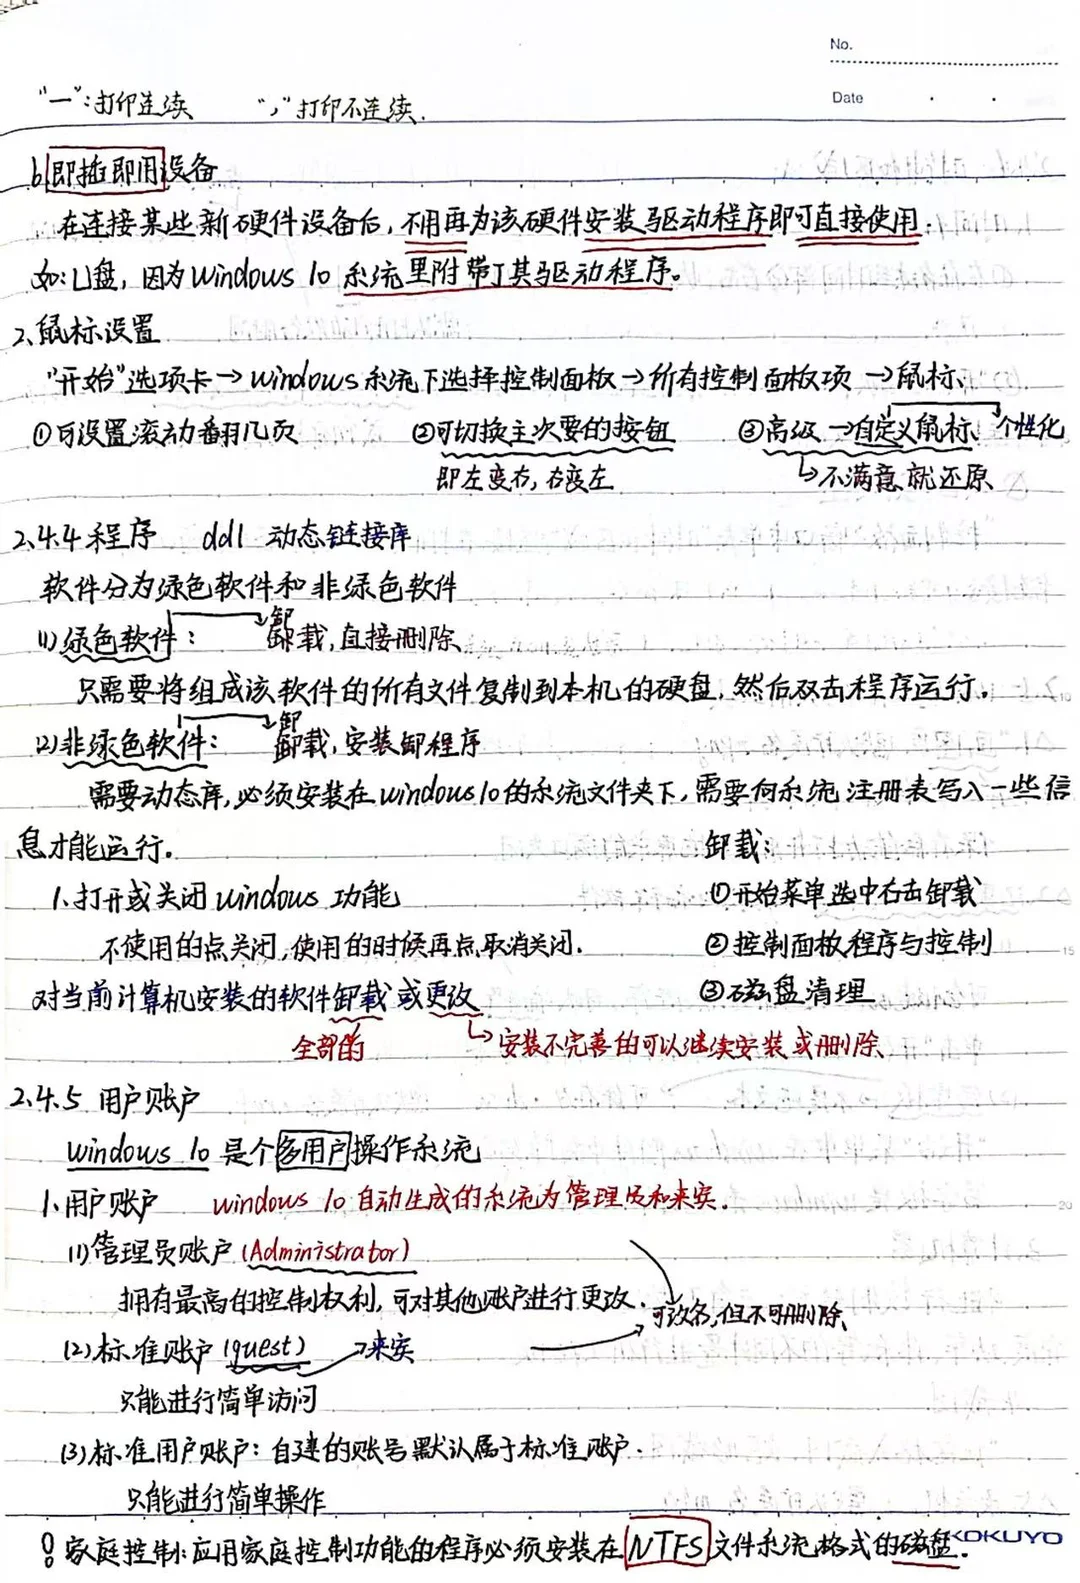 No.
Date
“—”：打印连续 “，”打印不连续.
6 即插即用设备
在连接某些新硬件设备后, 不用再为该硬件安装驱动程序即可直接使用.
如: U盘, 因为 windows 10 系统里附带了其驱动程序。
2、鼠标设置
“开始”选项卡→windows系统下选择控制面板→所有控制面板项→鼠标、
①可设置滚动翻几页 ②可切换主次要的按钮 ③高级→自定义鼠标、个性化
即左变右, 右变左 ↳不满意就还原、
2.4.4 程序 ddl 动态链接库
软件分为绿色软件和非绿色软件
(1)绿色软件: 卸载, 直接删除、
只需要将组成该软件的所有文件复制到本机的硬盘, 然后双击程序运行.
(2)非绿色软件: 卸载, 安装卸程序
需要动态库, 必须安装在windows10的系统文件夹下, 需要向系统注册表写入一些信
息才能运行。 卸载:
1、打开或关闭 windows 功能 ①开始菜单选中右击卸载
不使用的点关闭, 使用的时候再点取消关闭. ②控制面板程序与控制
对当前计算机安装的软件卸载或更改 ③磁盘清理
全部的 ↳安装不完善的可以继续安装或删除、
2.4.5 用户账户
windows 10 是个多用户操作系统
1、用户账户 windows 10 自动生成的系统为管理员和来宾.
(1)管理员账户 (Administrator)
拥有最高的控制权利, 可对其他账户进行更改. 可改名, 但不可删除、
(2)标准账户 (guest) →来宾
只能进行简单访问
(3)标准用户账户: 自建的账号默认属于标准账户.
只能进行简单操作
家庭控制: 应用家庭控制功能的程序必须安装在 NTFS 文件系统格式的磁盘.
KOKUYO